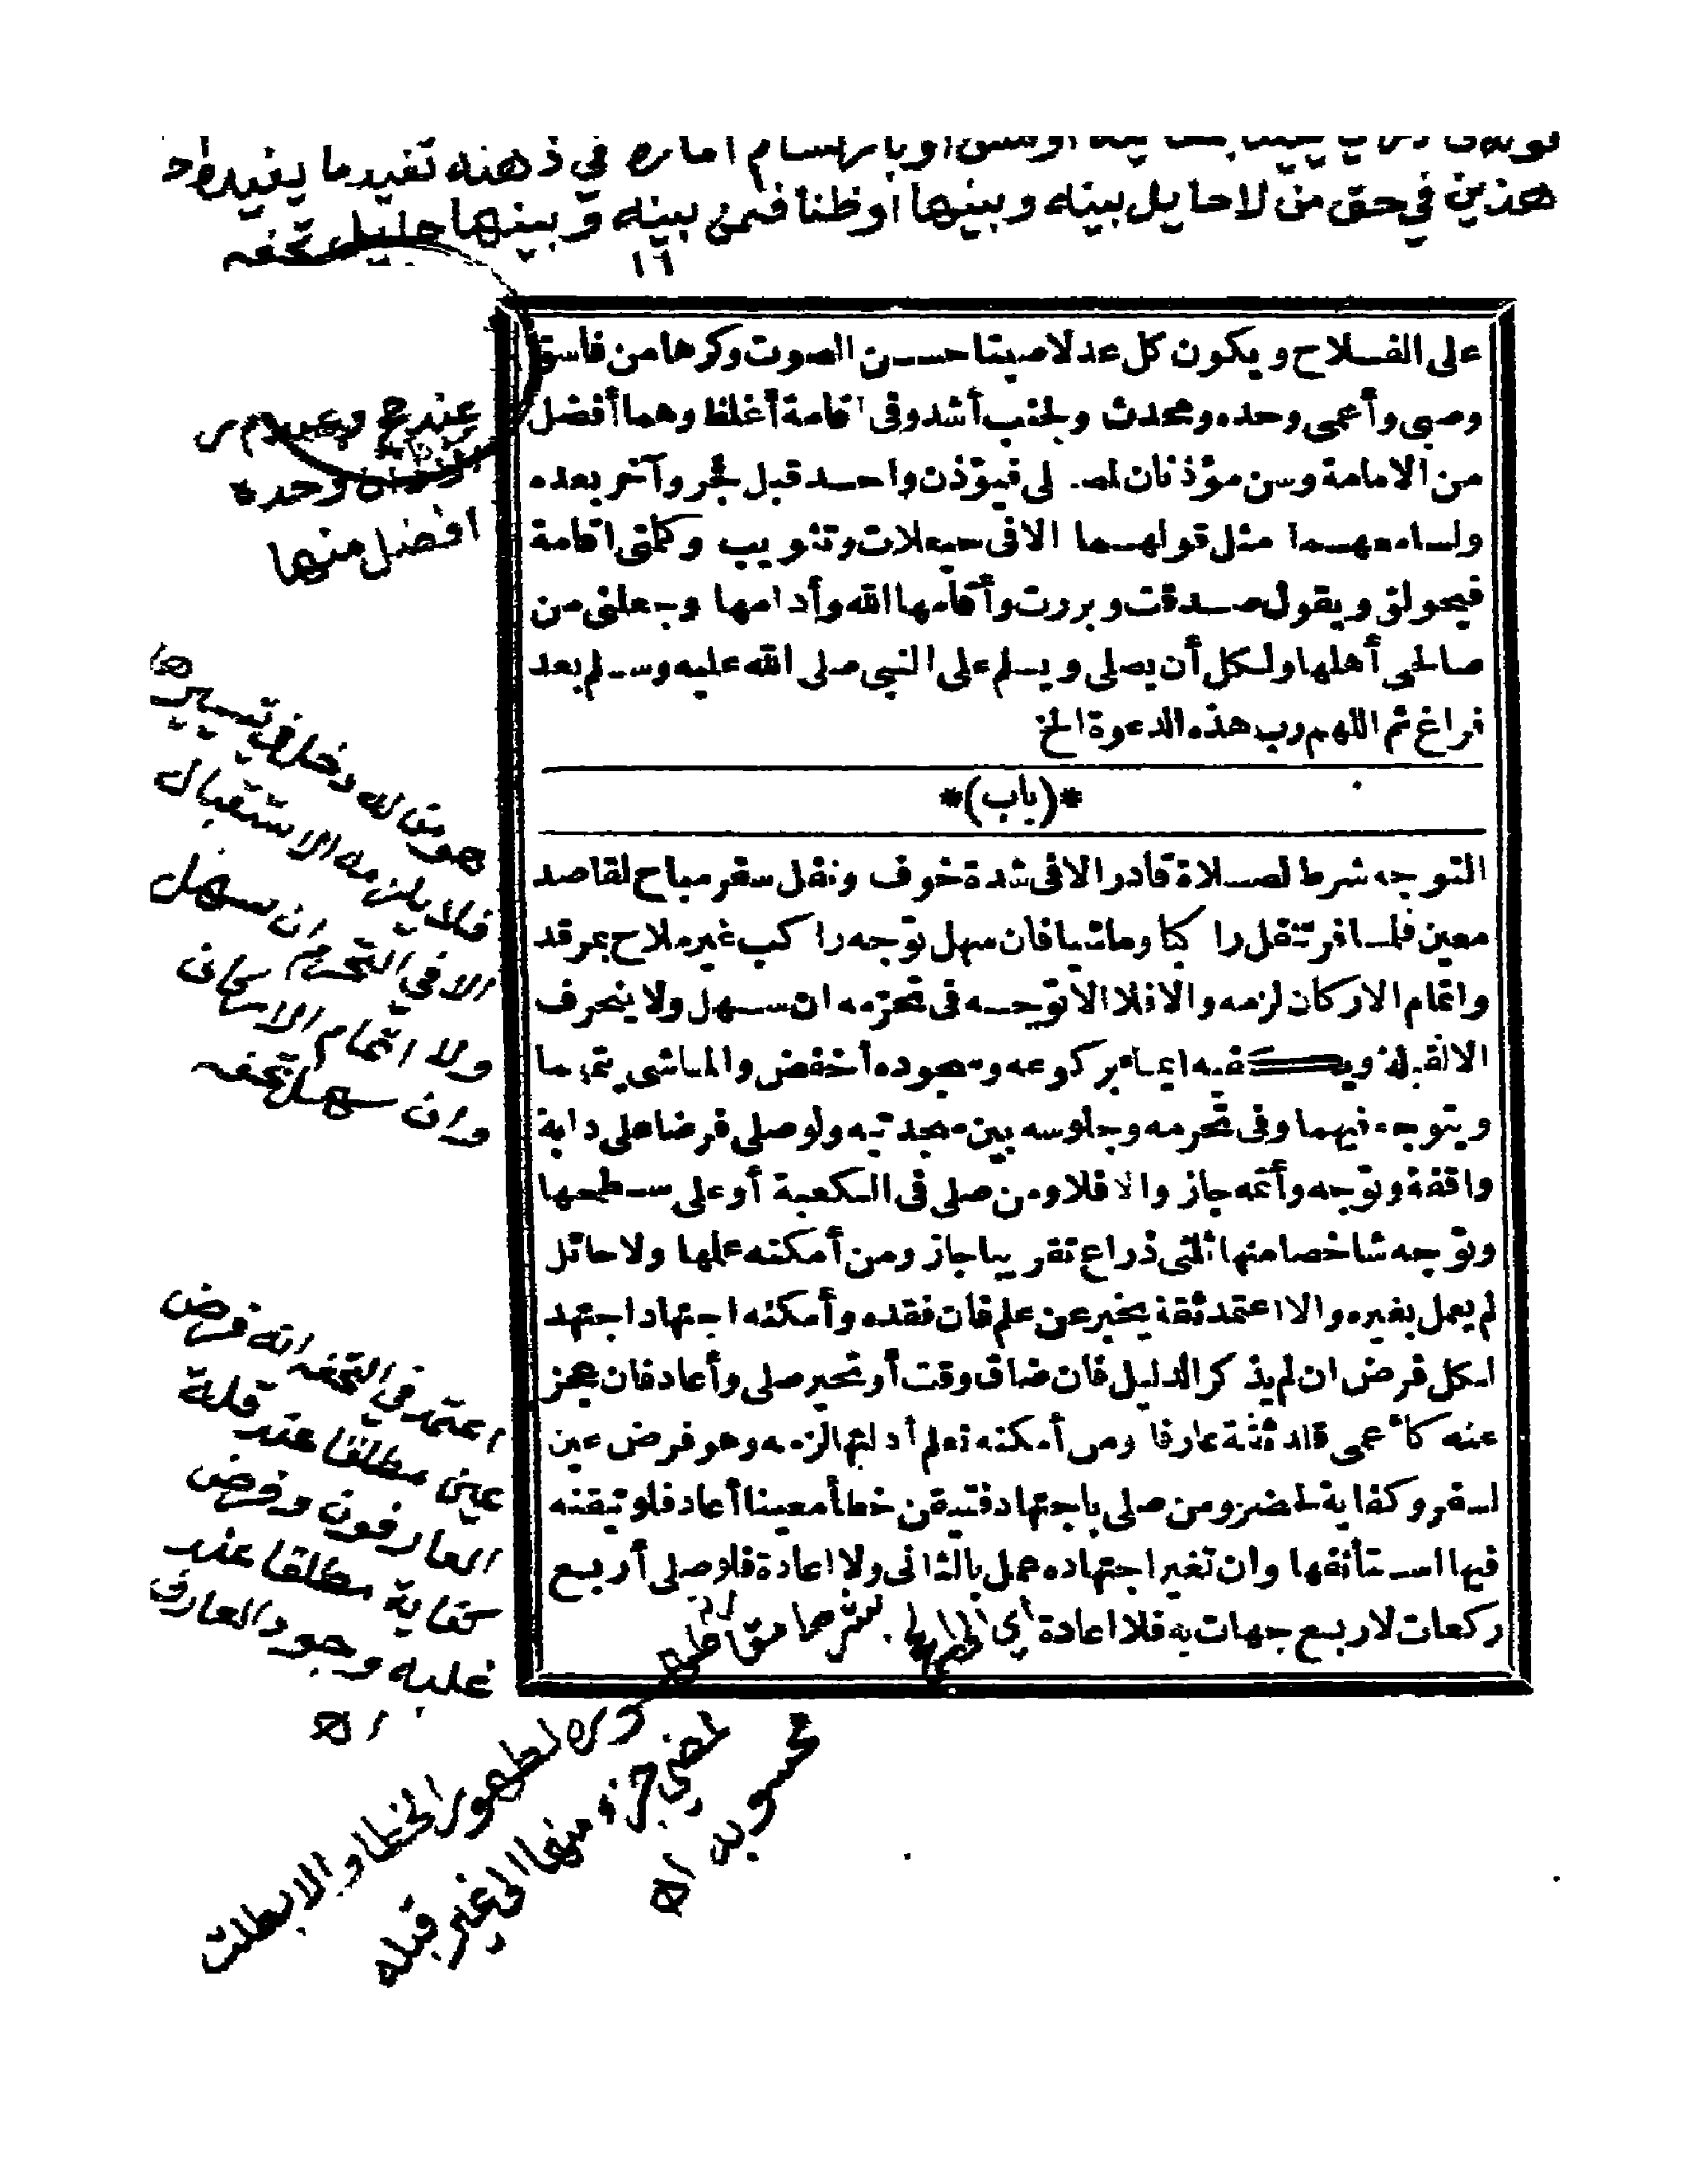 هذين في حق من لا حايل بينه وبينها أو ظنا فيمن بينه وبينها حايل تحفه
١٦
على الفلاح ويكون كل عدلا صيتا حسن الصوت وكرها من فاسق
وصبي وأعمى وحده ومحدث ولجنب أشد وفي اقامة أغلظ وهما أفضل
من الامامة وسن مؤذنان لمصلى فيؤذن واحد قبل فجر وآخر بعده
ولسامعهما مثل قولهما الا في حيعلات وتثويب وكلمتى اقامة
فيحولق ويقول صدقت وبررت وأقامها الله وأدامها وجعلني من
صالحي أهلها ولكل أن يصلى ويسلم على النبي صلى الله عليه وسلم بعد
فراغ ثم اللهم رب هذه الدعوة الخ
*(باب)*
التوجه شرط لصلاة قادر الا في شدة خوف ونفل سفر مباح لقاصد
معين فلمسافر تنفل راكبا وماشيا فان سهل توجه راكب غير ملاح بمرقد
واتمام الاركان لزمه والا فلا الا توجه في تحرمه ان سهل ولا ينحرف
الا لقبلة ويكفيه ايماء بركوعه وسجوده أخفض والماشى يتمهما
ويتوجه فيهما وفي تحرمه وجلوسه بين سجدتيه ولو صلى فرضا على دابة
واقفة وتوجه وأتمه جاز والا فلا ومن صلى في الكعبة أو على سطحها
وتوجه شاخصا منها ثلثى ذراع تقريبا جاز ومن أمكنه علمها ولا حائل
لم يعمل بغيره والا اعتمد ثقة يخبر عن علم فان فقده وأمكنه اجتهاد اجتهد
لكل فرض ان لم يذكر الدليل فان ضاق وقت أو تحير صلى وأعاد فان عجز
عنه كأعمى قلد ثقة عارفا ومن أمكنه تعلم أدلتها لزمه وهو فرض عين
لسفر وكفاية لحضر ومن صلى باجتهاد فتيقن خطأ معينا أعاد فلو تيقنه
فيها استأنفها وان تغير اجتهاده عمل بالثانى ولا اعادة فلو صلى أربع
ركعات لاربع جهات به فلا اعادة
وحده
افضل منها
فلا يلزمه الاستقبال
الا في التحرم ان سهل
ولا اتمام الاركان
وان سهل تحفه
اعتمد في التحفه انه فرض
عين مطلقا عند قلة
العارفون وفرض
كفاية مطلقا عند
غلبه وجود العارف
اه
لظهور الخطا والا بطلت
لمضي جزء منها الى غير قبله
محسوبه اه